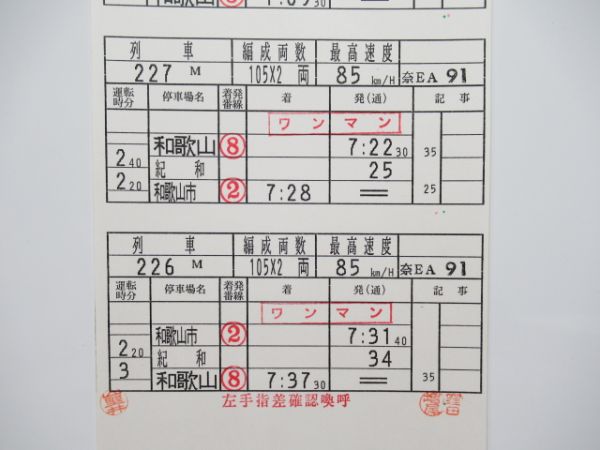 列車 編成両数 最高速度
227M 105X2両 85km/H 奈EA 91
運転時分 停車場名 着発番線 着 発(通) 記事
ワンマン
和歌山 ⑧ 7:22 30 35
2 40 紀和 25
2 20 和歌山市 ② 7:28 ＝ 25
列車 編成両数 最高速度
226M 105X2両 85km/H 奈EA 91
運転時分 停車場名 着発番線 着 発(通) 記事
ワンマン
和歌山市 ② 7:31 40
2 20 紀和 34
3 和歌山 ⑧ 7:37 30 ＝ 35
左手指差確認喚呼